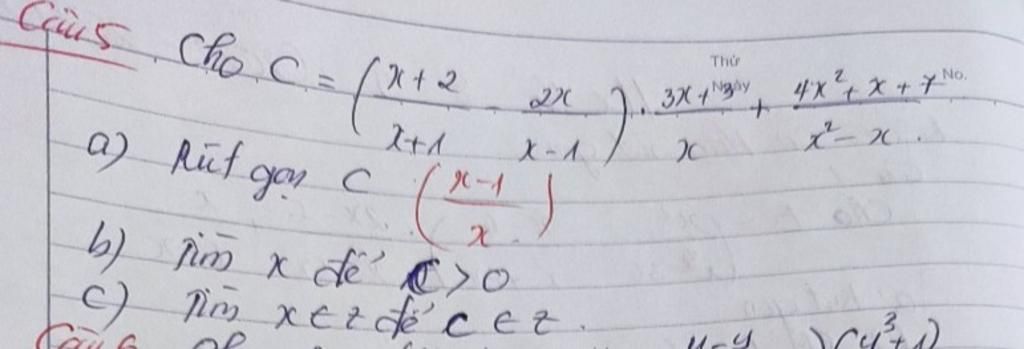 Câu 5. Cho C = (x+2/x+1 - 2x/x-1) . 3x+3/x + 4x²+x+7/x²-x.
Thứ
Ngày
No.
a) Rút gọn C (x-1/x)
b) Tìm x để C > 0
c) Tìm x ∈ z để C ∈ z.
Câu 6